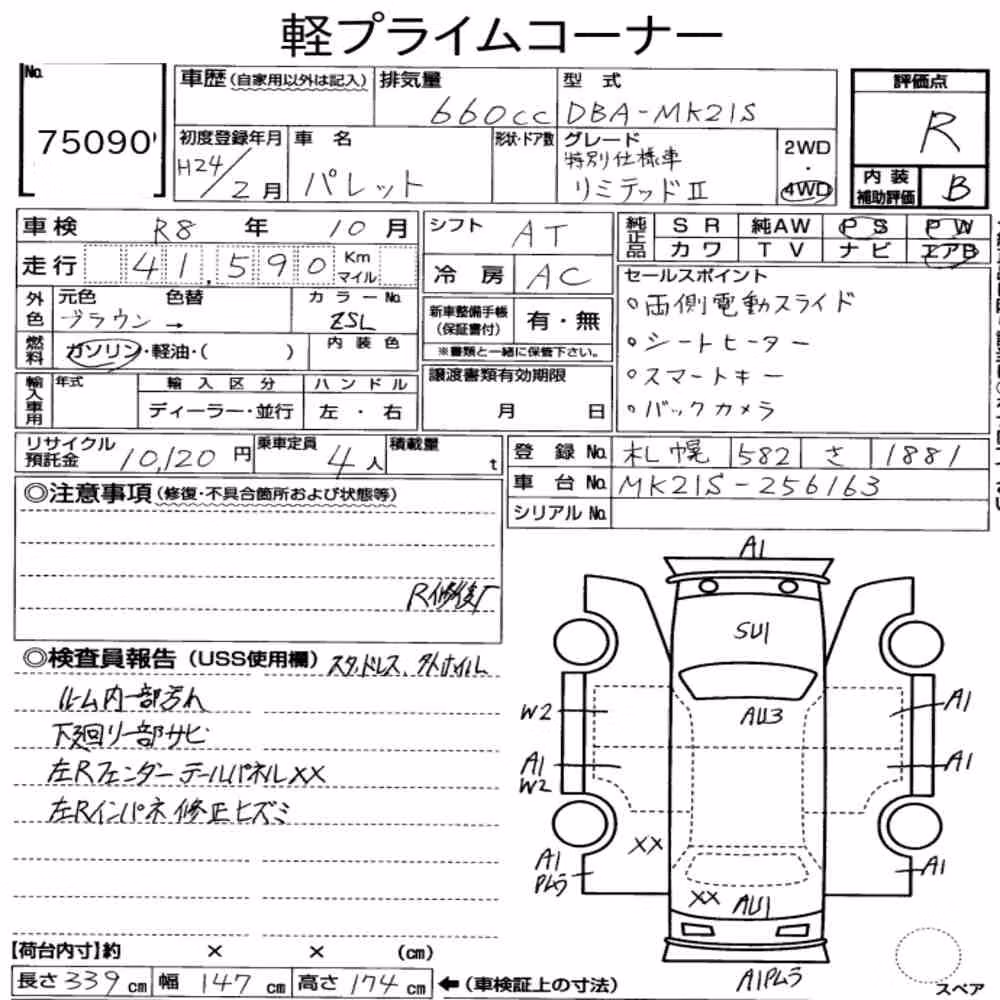 軽プライムコーナー
No. 75090
車歴(自家用以外は記入) 排気量 660cc 型式 DBA-MK21S
初度登録年月 H24/2月 車名 パレット 形状・ドア数 グレード 特別仕様車 リミテッドII 2WD・4WD
評価点 R
内装補助評価 B
車検 R8年 10月 シフト AT
走行 41,590 Km マイル 冷房 AC
純正品 SR 純AW PS PW
カワ TV ナビ エアB
外色 元色 ブラウン→ 色替 カラーNo. ZSL
燃料 ガソリン・軽油・( ) 内装色
新車整備手帳(保証書付) 有・無
※書類と一緒に保管下さい。
セールスポイント
○両側電動スライド
○シートヒーター
○スマートキー
○バックカメラ
輸入車用 年式 輸入区分 ディーラー・並行 ハンドル 左・右
譲渡書類有効期限 月 日
リサイクル預託金 10,120円 乗車定員 4人 積載量 t
登録No. 札幌 582 さ 1881
車台No. MK21S-256163
シリアルNo.
◎注意事項(修復・不具合箇所および状態等)
R修復
◎検査員報告(USS使用欄) スタッドレス、外ホイル
ルーム内一部汚れ
下廻り一部サビ
左Rフェンダーテールパネルxx
左Rインパネ修正ヒズミ
A1
SU1
W2 AU3 A1
A1 W2 A1
xx
A1 Pムラ A1
xx AU1
A1Pムラ
スペア
【荷台内寸】約 × × (cm)
長さ339cm 幅147cm 高さ174cm ←(車検証上の寸法)